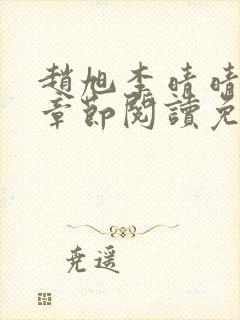 趙旭李晴晴
章節閱讀免
堯遥